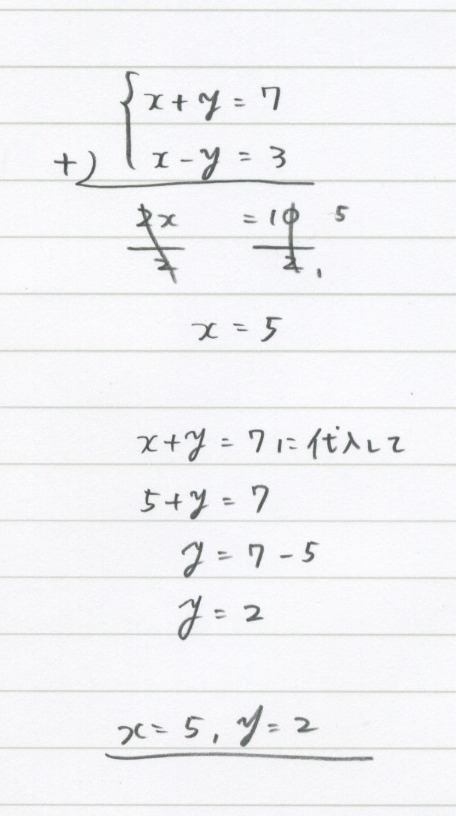 x+y=7
+) x-y=3
2x/2 =10/2 5 1
x=5
x+y=7に代入して
5+y=7
y=7-5
y=2
x=5, y=2